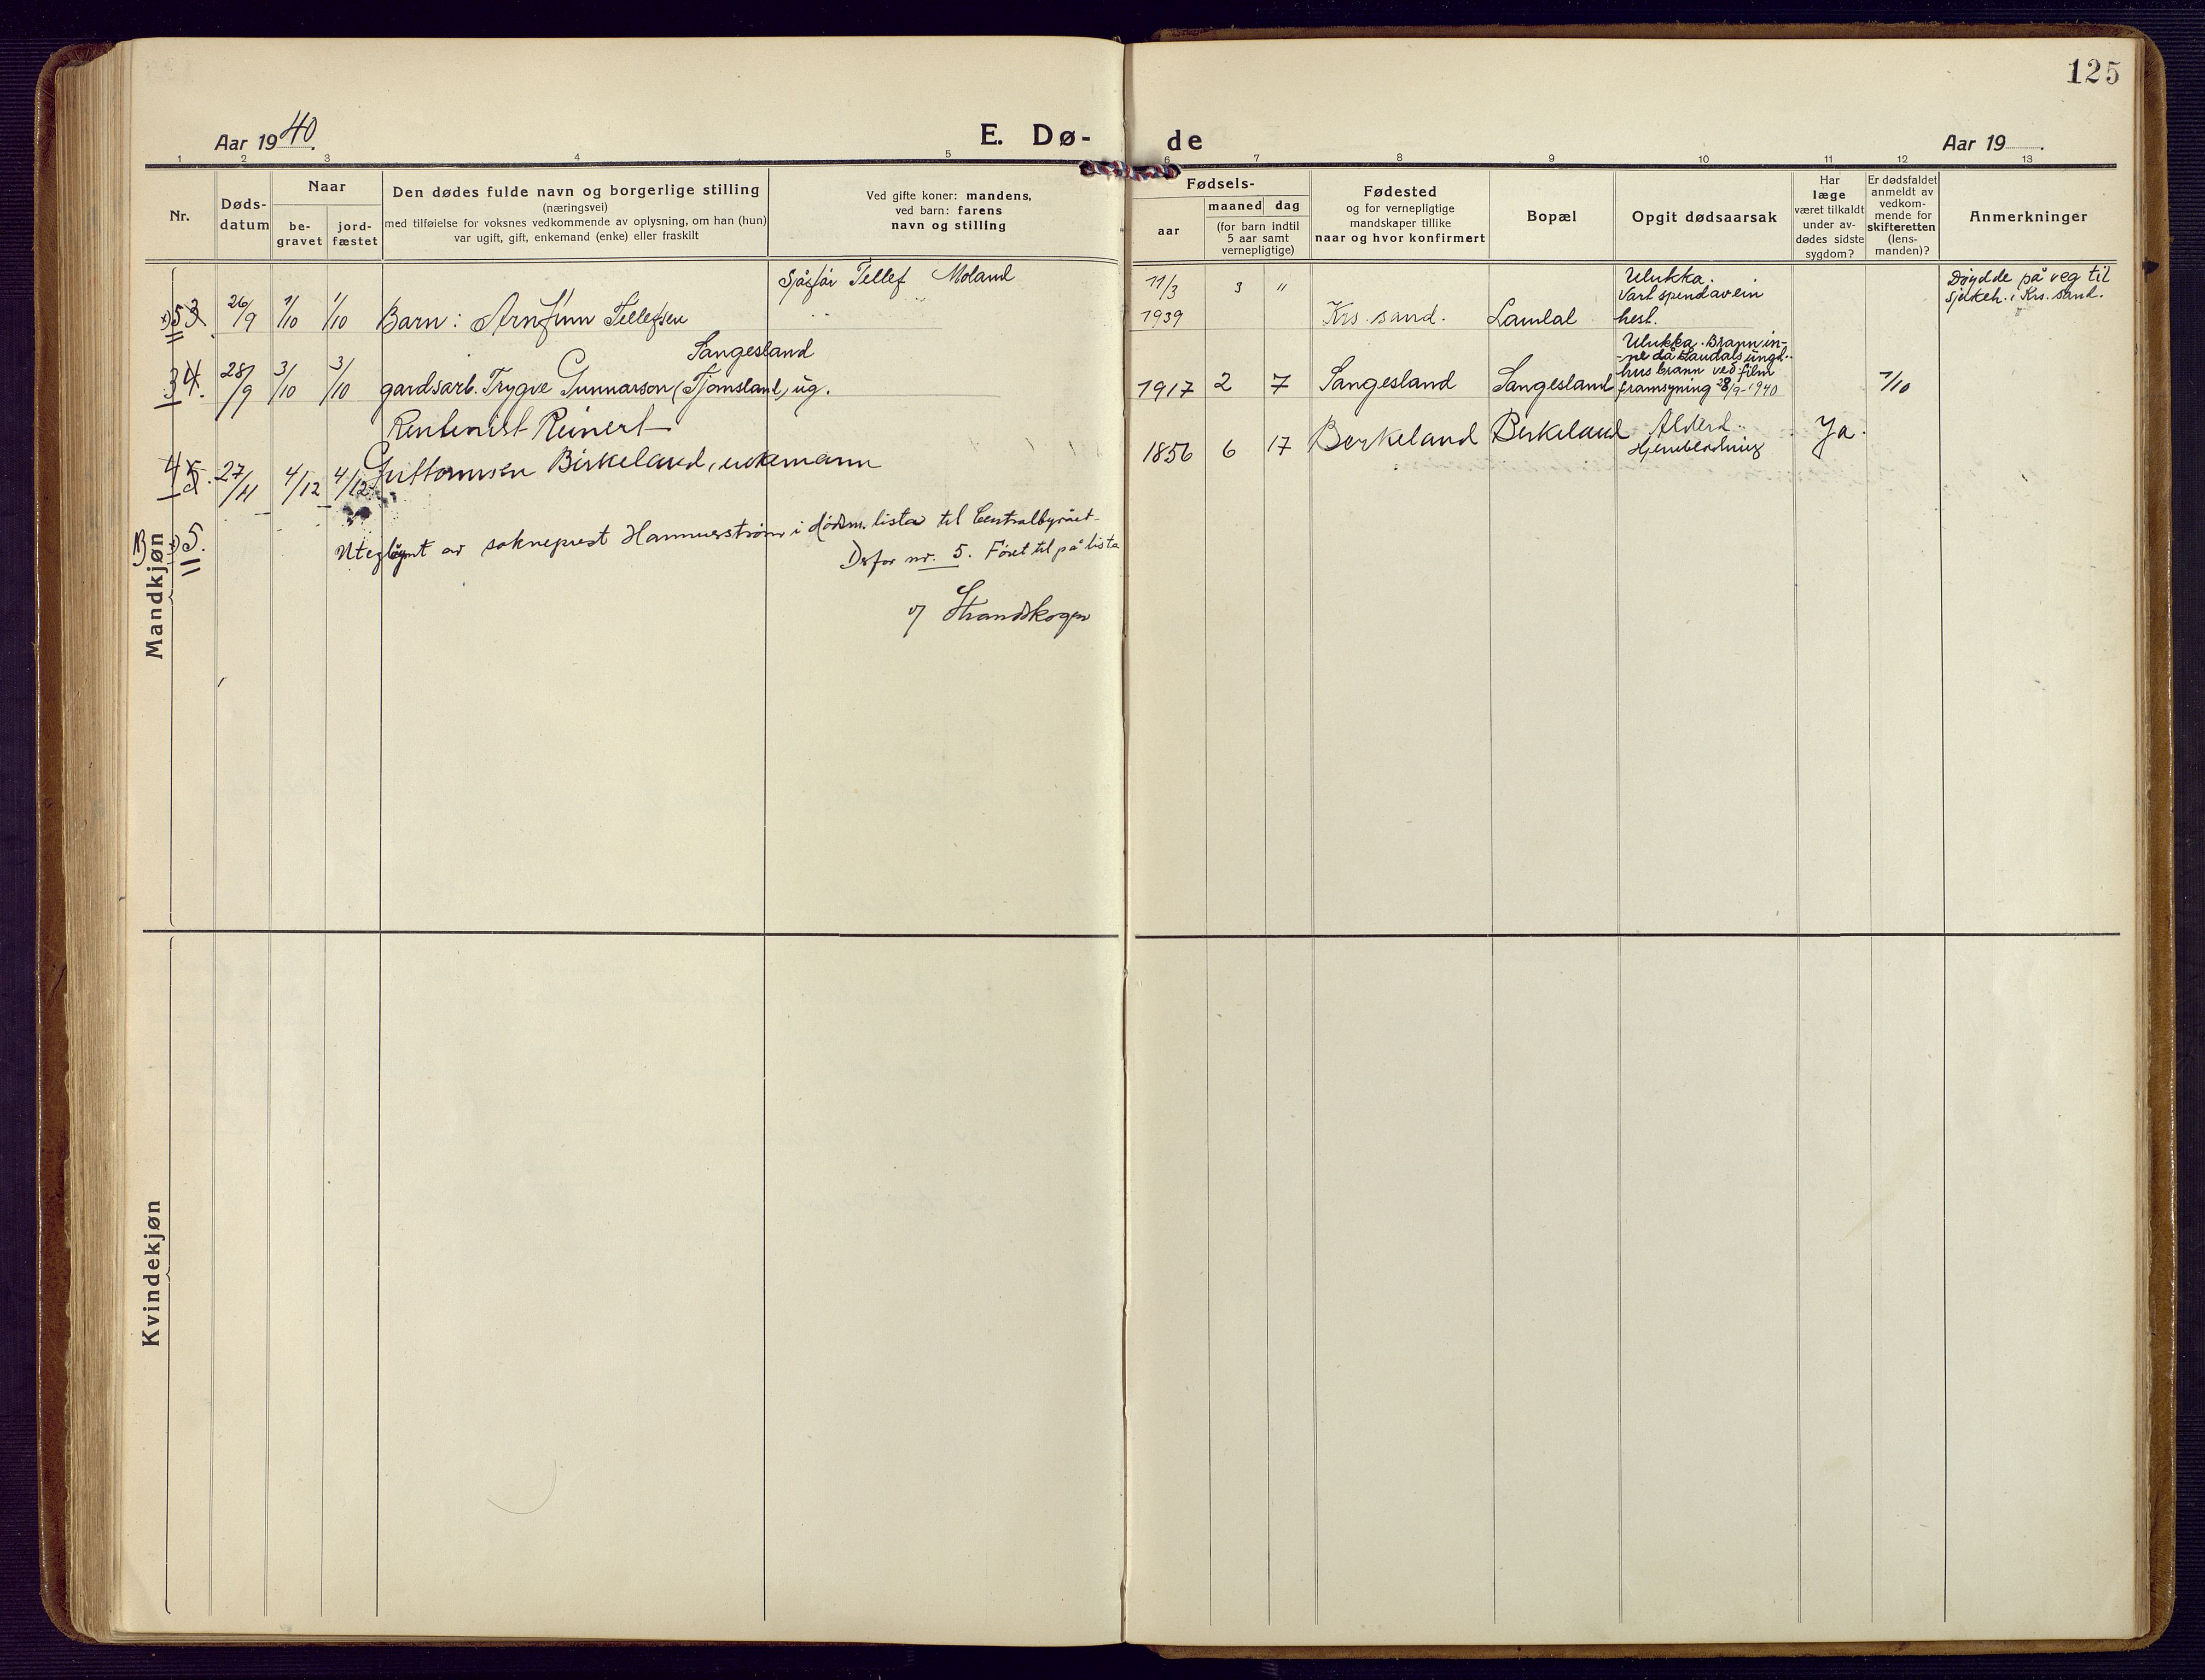 125
Aar 1940.
E. Dø-
de
Aar 19
1 2 3 4 5 6 7 8 9 10 11 12 13
Nr.
Døds-
datum
Naar
be-
gravet
jord-
fæstet
Den dødes fulde navn og borgerlige stilling
(næringsvei)
med tilføielse for voksnes vedkommende av oplysning, om han (hun)
var ugift, gift, enkemand (enke) eller fraskilt
Ved gifte koner: mandens,
ved barn: farens
navn og stilling
Fødsels-
aar
maaned
dag
(for barn indtil
5 aar samt
vernepligtige)
Fødested
og for vernepligtige
mandskaper tillike
naar og hvor konfirmert
Bopæl
Opgit dødsaarsak
Har
læge
været tilkaldt
under av-
dødes sidste
sygdom?
Er dødsfaldet
anmeldt av
vedkom-
mende for
skifteretten
(lens-
manden)?
Anmerkninger
Mandkjøn
x) 5 3. 26/9 1/10 1/10 Barn: Arnfinn Tellefsen
Sjåfør Tellef Moland
11/3
1939 3 " Krs. sand. Laudal
Ulukka.
Vart spend av ein
hest.
Døydde på veg til
sjukeh. i Krs. sand.
Sangesland
3 4. 28/9 3/10 3/10 gardsarb. Trygve Gunnarson (Tjomsland), ug.
1917 2 7 Sangesland Sangesland
Ulukka. Brann in-
-ne då Laudals ungd.-
hus brann ved film
framsyning 28/9-1940
1/10
Rentenist Reinert
4 5. 27/11 4/12 4/12 Guttormsen Birkeland, enkemann
1856 6 17 Berkeland Birkeland
Alderd.
Hjernebløding
Ja.
x) 5.
Utegløymt av sokneprest Hammerstrøm i dødsm. lista til Centralbyrået
Derfor nr. 5. Føret til på lista
Strandskogen
Kvindekjøn